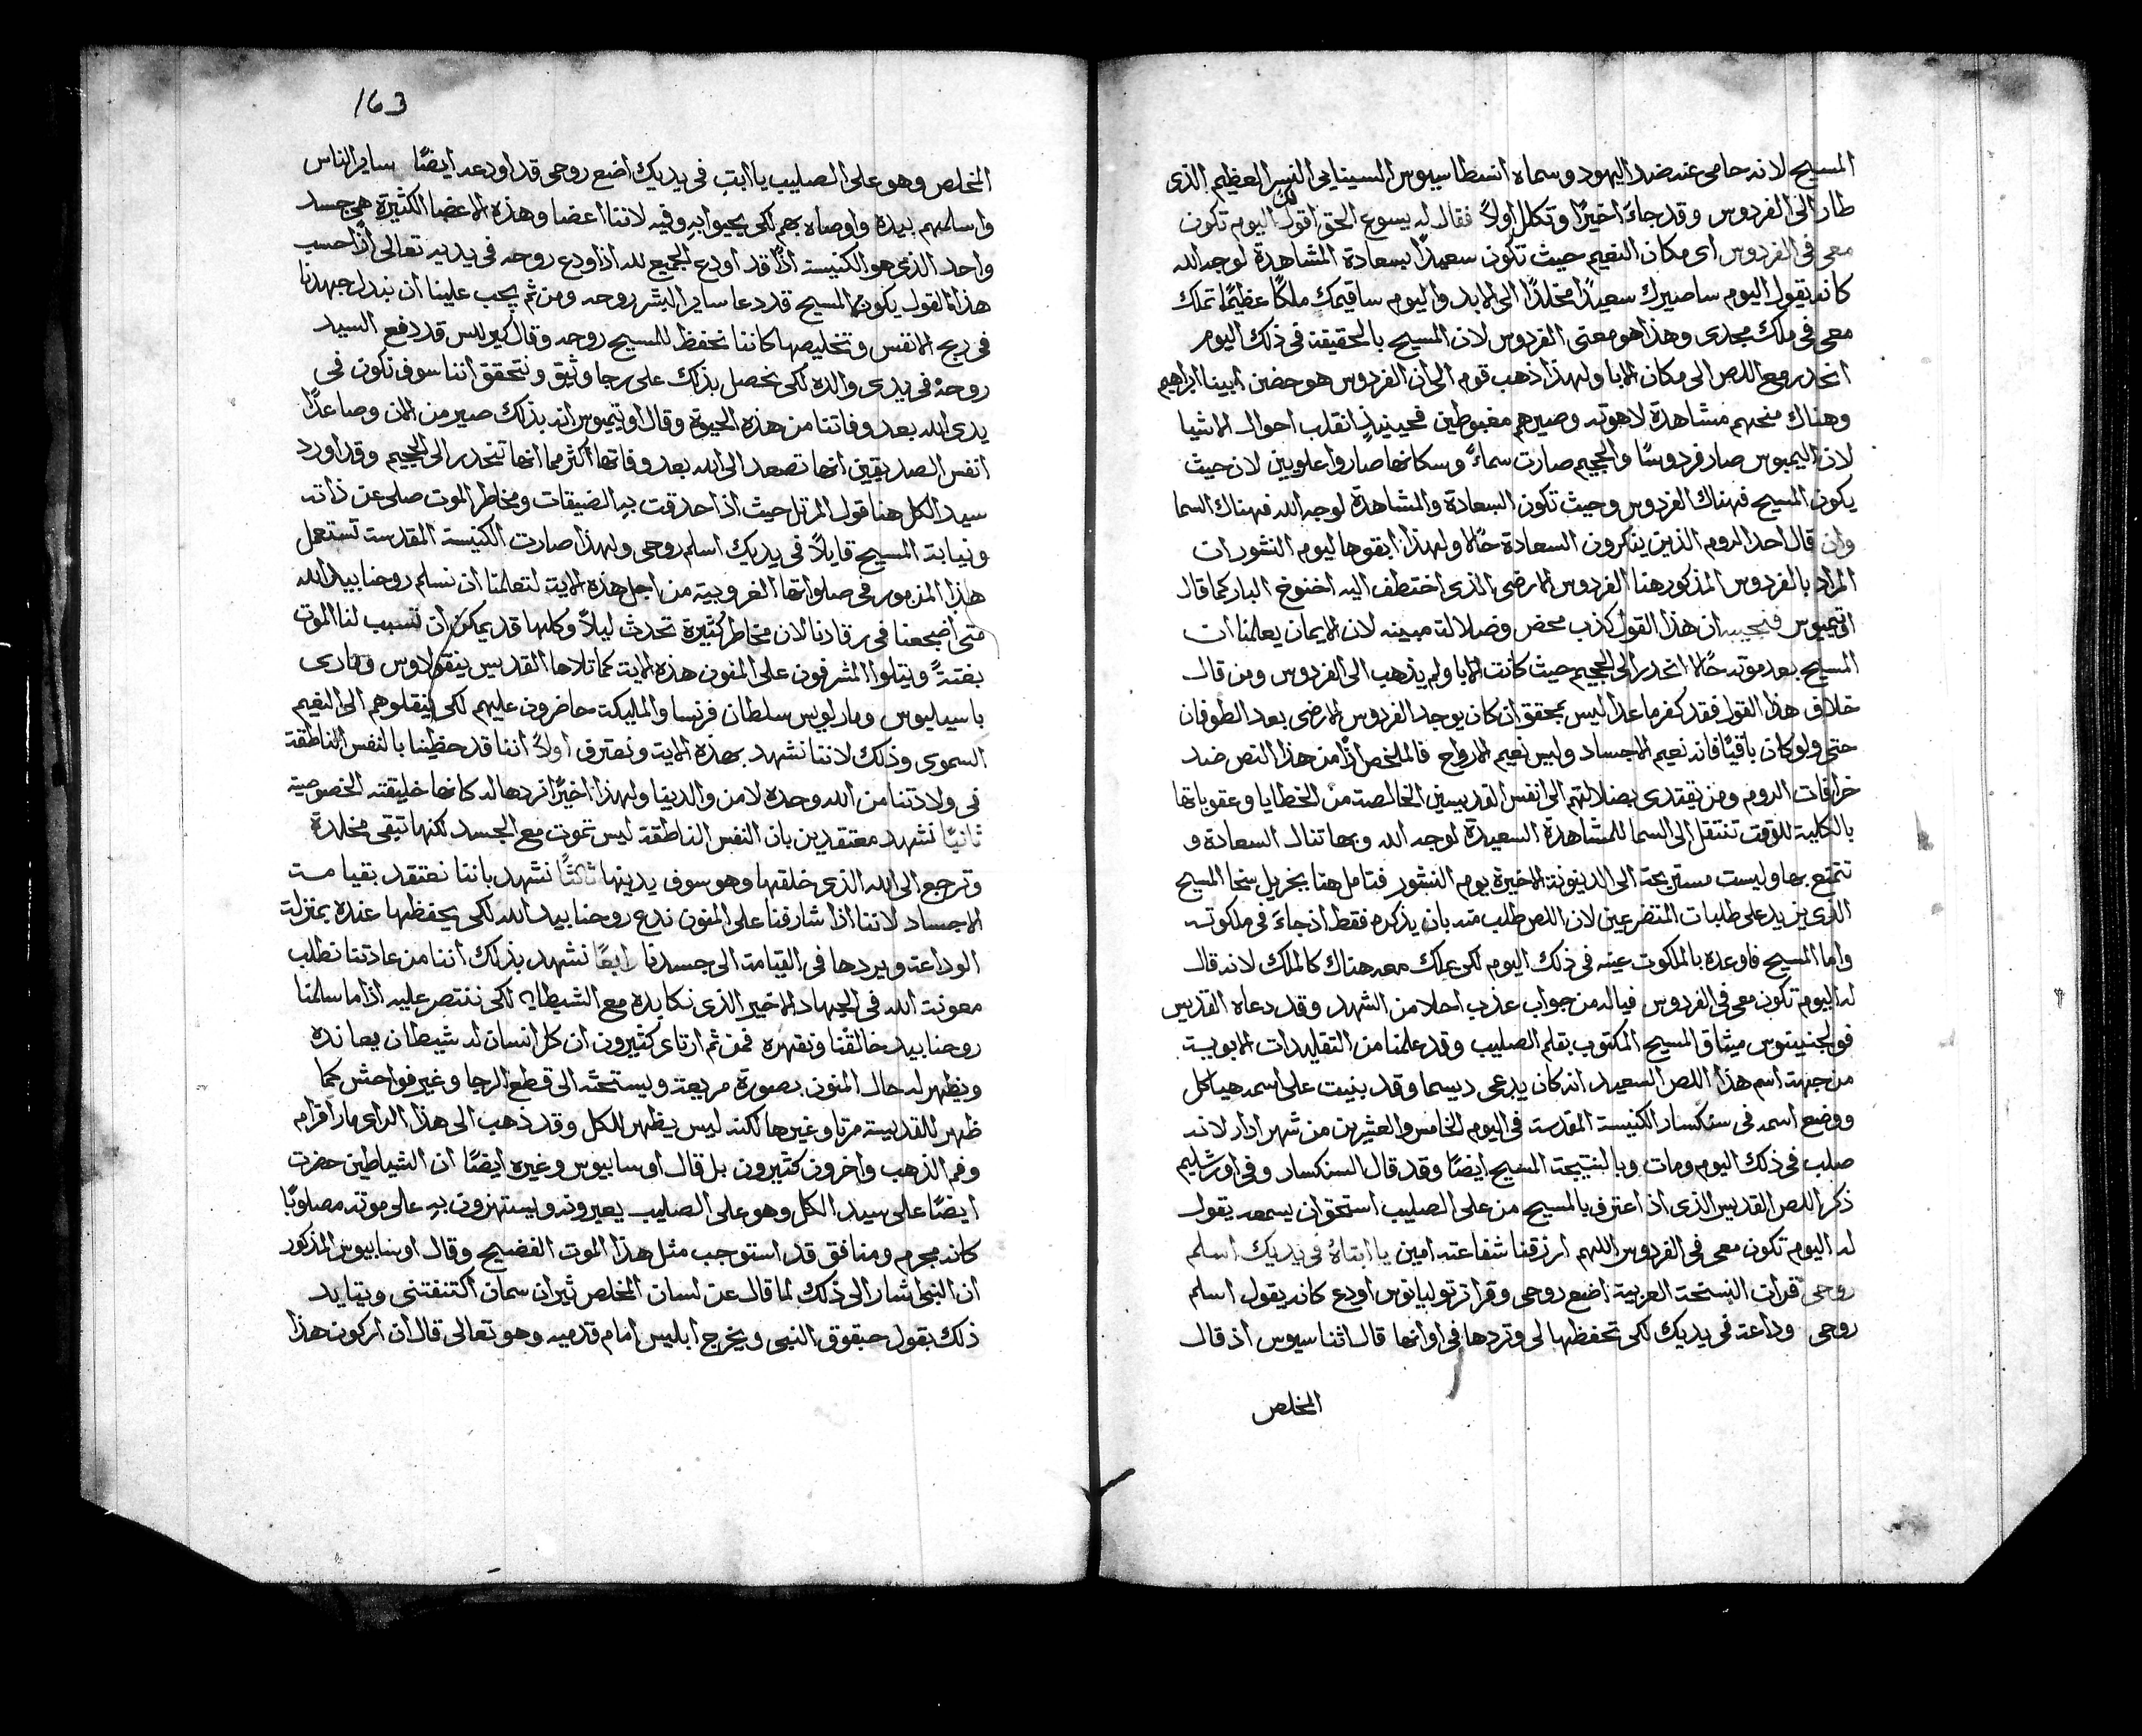 المسيح لانه حامى عنه ضد اليهود وسماه انسطاسيوس السينايى النسر العظيم الذى
طار الى الفردوس وقد جاءَ اخيرًا وتكلل اولاً فقال له يسوع الحق اقول لك اليوم تكون
معى فى الفردوس اى مكان النعيم حيث تكون سعيدًا بسعادة المشاهدة لوجه الله
كانه يقول اليوم ساصيرك سعيدًا مخلدًا الى الابد واليوم ساقيمك ملكًا عظيمًا تملك
معى فى ملك مجدى وهذا هو معنى الفردوس لان المسيح بالحقيقة فى ذلك اليوم
انحدر مع اللص الى مكان الابا ولهذا ذهب قوم الى ان الفردوس هو حضن ابينا ابراهيم
وهناك منحهم مشاهدة لاهوته وصيرهم مغبوطين فحينيذٍ انقلب احوال الاشيا
لان اليمبوس صار فردوسًا والجحيم صارت سماءً وسكانها صاروا علويين لان حيث
يكون المسيح فهناك الفردوس وحيث تكون السعادة والمشاهدة لوجه الله فهناك السما
وان قال احد الروم الذين ينكرون السعادة حالا ولهذا ابقوها ليوم النشور ان
المراد بالفردوس المذكور هنا الفردوس الارضى الذى اختطف اليه اخنوخ البار كما قال
اوتيميوس فنجيبه ان هذا القول كذب محض وضلالة مبينه لان الايمان يعلمنا ان
المسيح بعد موته حالا انحدر الى الجحيم حيث كانت الابا ولم يذهب الى الفردوس ومن قال
خلاف هذا القول فقد كفر ما عدا ليس بمحقق ان كان يوجد الفردوس الارضى بعد الطوفان
حتى ولو كان باقيًا فانه نعيم الاجساد وليس نعيم الارواح فالملخص اذًا من هذا النص ضد
خرافات الروم ومن يقتدى بضلالتهم الى انفس القديسين الخالصة من الخطايا وعقوباتها
بالكلية للوقت تنتقل الى السما للمشاهدة السعيدة لوجه الله وبها تنال السعادة و
تتمتع بها وليست مستريحة الى الدينونة الاخيرة يوم النشور فتامل هنا بجزيل سخا المسيح
الذى يزيد على طلبات المتضرعين لان اللص طلب منه بان يذكره فقط اذ جاءَ فى ملكوته
واما المسيح فاوعده بالملكوت عينه فى ذلك اليوم لكى يملك معه هناك كالملك لانه قال
له اليوم تكون معى فى الفردوس فياله من جواب عذب احلا من الشهد وقد دعاه القديس
فولجنيتوس ميثاق المسيح المكتوب بقلم الصليب وقد علمنا من التقليدات الابوية
من جهة اسم هذا اللص السعيد انه كان يدعى ديسما وقد بنيت على اسمه هياكل
ووضع اسمه فى سنكسار الكنيسة المقدسة فى اليوم الخامس والعشرين من شهر ادار لانه
صلب فى ذلك اليوم ومات وبالنتيجة المسيح ايضًا وقد قال السنكسار وفى اورشليم
ذكر اللص القديس الذى اذ اعترف بالمسيح من على الصليب استحق ان يسمعه يقول
له اليوم تكون معى فى الفردوس اللهم ارزقنا شفاعته امين يا ابتاهُ فى يديك اسلم
روحى قرات النسخة العربية اضع روحى وقرا ترتوليانوس اودع كانه يقول اسلم
روحى وداعة فى يديك لكى تحفظها لى وتردها فى اوانها قال اثناسيوس اذ قال
المخلص
163
المخلص وهو على الصليب يا ابتِ فى يديك اضع روحى قد اودعه ايضًا ساير الناس
واسلمهم بيده واوصاه بهم لكى يحيوا بهِ وفيه لاننا اعضا وهذه الاعضا الكثيرة هى جسد
واحد الذى هو الكنيسة اذًا قد اودع الجميع لله اذ اودع روحه فى يديه تعالى اذًا حسب
هذا القول يكون المسيح قد دعا ساير البشر روحه ومن ثم يجب علينا ان نبدل جهدنا
فى ربح الانفس وتخليصها كاننا نحفظ للمسيح روحه وقال كيرللس قد دفع السيد
روحهُ فى يدى والده لكى نحصل بذلك على رجا وثيق ونتحقق اننا سوف نكون فى
يدى الله بعد وفاتنا من هذه الحيوة وقال اوتيميوس انه بذلك صير من الان وصاعدًا
انفس الصديقين انها تصعد الى الله بعد وفاتها اكثر مما انها تنحدر الى الجحيم وقد اورد
سيد الكل هنا قول المرتل حيث اذ احدقت بهِ الضيقات ومخاطر الموت صلى عن ذاته
ونيابة المسيح قايلاً فى يديك اسلم روحى ولهذا صارت الكنيسة المقدسة تستعمل
هذا المزمور فى صلواتها الغروبية من اجل هذه الاية لتعلمنا ان نسلم روحنا بيد الله
متى اضجعنا فى رقادنا لان مخاطر كثيرة تحدث ليلاً وكلها قد يمكن ان تسبب لنا الموت
بغتةً ويتلوا المشرفون على المنون هذه الاية كما تلاها القديس ينقولاوس ومارى
باسيليوس ومار لويس سلطان فرنسا والمليكة حاضرون عليهم لكى ينقلوهم الى النعيم
السموى وذلك لاننا نشهد بهذه الاية ونعترف اولاً اننا قد حظينا بالنفس الناطقة
فى ولادتنا من الله وحده لا من والدينا ولهذا اخيرًا نردها له كانها خليقته الخصوصية
ثانيًا نشهد معتقدين بان النفس الناطقة ليس تموت مع الجسد لكنها تبقى مخلدة
وترجع الى الله الذى خلقها وهو سوف يدينها ثالثًا نشهد باننا نعتقد بقيامة
الاجساد لاننا اذا شارفنا على المنون ندع روحنا بيد الله لكى يحفظها عنده بمنزلة
الوداعة ويردها فى القيامة الى جسدنا رابعًا نشهد بذلك اننا من عادتنا نطلب
معونة الله فى الجهاد الاخير الذى نكابده مع الشيطان لكى ننتصر عليه اذا ما سلمنا
روحنا بيد خالقنا ونقهره فمن ثم ارتاى كثيرون ان كل انسان له شيطان يعانده
ويظهر له حال المنون بصورة مريعة ويستحثه الى قطع الرجا وغير فواحش كما
ظهر للقديسة مرتا وغيرها لكنه ليس يظهر للكل وقد ذهب الى هذا الراى مار افرام
وفم الذهب واخرون كثيرون بل قال اوسابيوس وغيره ايضًا ان الشياطين حضرت
ايضًا على سيد الكل وهو على الصليب يعيرونه ويستهزون بهِ على موته مصلوبًا
كانه مجرم ومنافق قد استوجب مثل هذا الموت الفضيح وقال اوسابيوس المذكور
ان النبى اشار الى ذلك لما قال عن لسان المخلص ثيران سمان اكتنفتنى ويتايد
ذلك بقول حبقوق النبى ويخرج ابليس امام قدميه وهو تعالى قال ان اركون هذا